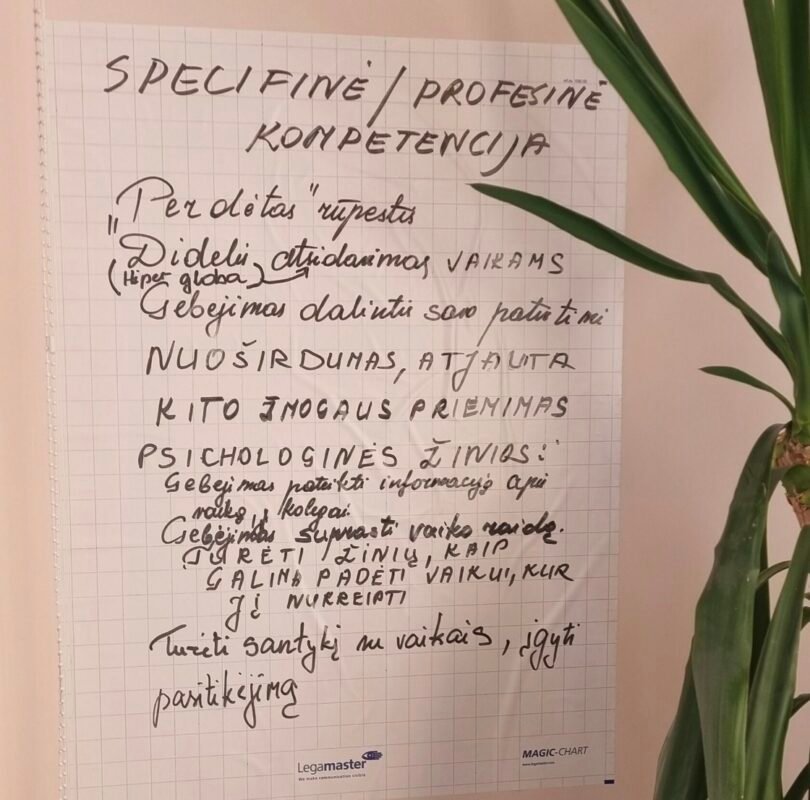 SPECIFINĖ / PROFESINĖ
KOMPETENCIJA
„Per dėtas" rūpestis
Didelis atsidavimas VAIKAMS
(Hiper globa)
Gebėjimas dalintis savo patirtimi
NUOŠIRDUMAS, ATJAUTA
KITO ŽMOGAUS PRIĖMIMAS
PSICHOLOGINĖS ŽINIOS:
Gebėjimas pateikti informaciją apie
vaiką, kolegai.
Gebėjimas suprasti vaiko raidą.
TURĖTI ŽINIŲ, KAIP
GALIMA PADĖTI VAIKUI, KUR
JĮ NUKREIPTI
Turėti santykį su vaikais, įgyti
pasitikėjimą
Legamaster
We make communication visible
MAGIC-CHART
www.legamaster.com